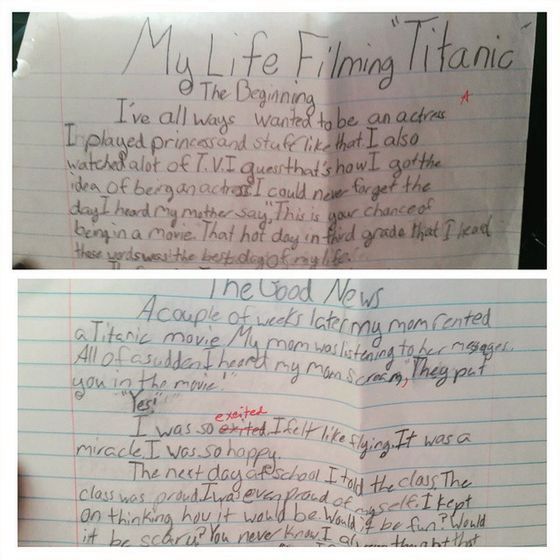 My Life Filming "Titanic
The Beginning
A
I've all ways wanted to be an actress
I played princess and stuff like that. I also
watched alot of T.V. I guess that's how I got the
idea of berg an actress I could never forget the
day I heard my mother say, "This is your chance of
being in a movie. That hot day in third grade that I heard
these words was the best day of my life.
The Good News
A couple of weeks later my mom rented
a Titanic movie. My mom was listening to her messages.
All of a sudden I heard my mom scream, "They put
you in the movie!"
"Yes!"
excited
I was so exited. I felt like flying. It was a
miracle. I was so happy.
The next day at school I told the class The
class was proud. I was even proud of myself. I kept
on thinking how it would be. Would it be fun? Would
it be scary? You never know. I always thought that